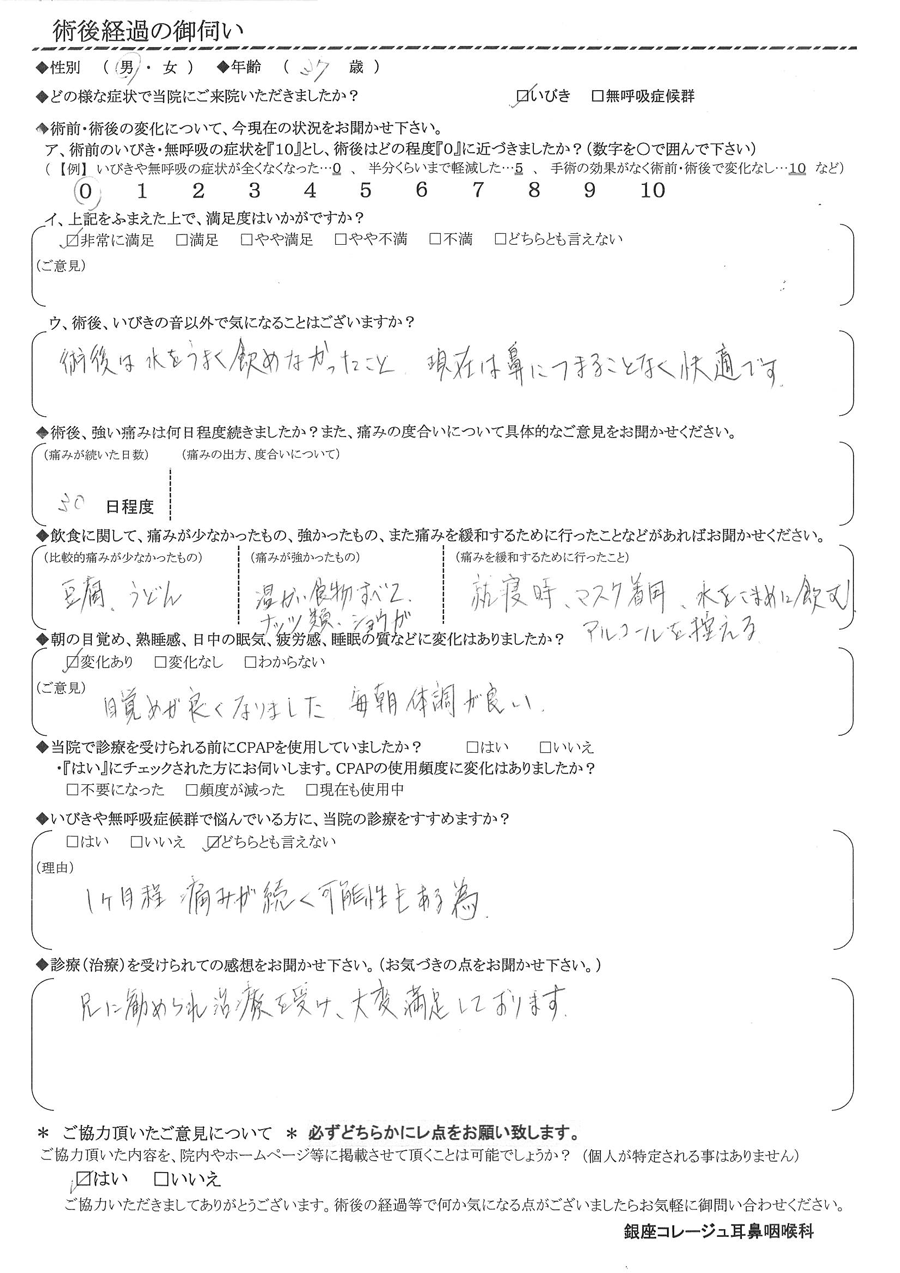 術後経過の御伺い
◆性別 （ 男 ・ 女 ） ◆年齢 （ 37 歳 ）
◆どの様な症状で当院にご来院いただきましたか？ ☑いびき □無呼吸症候群
◆術前・術後の変化について、今現在の状況をお聞かせ下さい。
ア、術前のいびき・無呼吸の症状を『10』とし、術後はどの程度『0』に近づきましたか？（数字を〇で囲んで下さい）
（ 【例】 いびきや無呼吸の症状が全くなくなった…0 、 半分くらいまで軽減した…5 、 手術の効果がなく術前・術後で変化なし…10 など）
0 1 2 3 4 5 6 7 8 9 10
イ、上記をふまえた上で、満足度はいかがですか？
☑非常に満足 □満足 □やや満足 □やや不満 □不満 □どちらとも言えない
（ご意見）
ウ、術後、いびきの音以外で気になることはございますか？
術後は水をうまく飲めなかったこと 現在は鼻につまることなく快適です.
◆術後、強い痛みは何日程度続きましたか？また、痛みの度合いについて具体的なご意見をお聞かせください。
（痛みが続いた日数） （痛みの出方、度合いについて）
30 日程度
◆飲食に関して、痛みが少なかったもの、強かったもの、また痛みを緩和するために行ったことなどがあればお聞かせください。
（比較的痛みが少なかったもの） （痛みが強かったもの） （痛みを緩和するために行ったこと）
豆腐、うどん 温かい食物すべて、 就寝時、マスク着用、水をこまめに飲む
ナッツ類、ショウガ アルコールを控える
◆朝の目覚め、熟睡感、日中の眠気、疲労感、睡眠の質などに変化はありましたか？
☑変化あり □変化なし □わからない
（ご意見）
目覚めが良くなりました 毎朝体調が良い.
◆当院で診療を受けられる前にCPAPを使用していましたか？ □はい □いいえ
・『はい』にチェックされた方にお伺いします。CPAPの使用頻度に変化はありましたか？
□不要になった □頻度が減った □現在も使用中
◆いびきや無呼吸症候群で悩んでいる方に、当院の診療をすすめますか？
□はい □いいえ ☑どちらとも言えない
（理由）
1ヶ月程 痛みが続く可能性もある為.
◆診療（治療）を受けられての感想をお聞かせ下さい。（お気づきの点をお聞かせ下さい。）
兄に勧められ治療を受け、大変満足しております.
＊ ご協力頂いたご意見について ＊ 必ずどちらかにレ点をお願い致します。
ご協力頂いた内容を、院内やホームページ等に掲載させて頂くことは可能でしょうか？ （個人が特定される事はありません）
☑はい □いいえ
ご協力いただきましてありがとうございます。術後の経過等で何か気になる点がございましたらお気軽に御問い合わせください。
銀座コレージュ耳鼻咽喉科